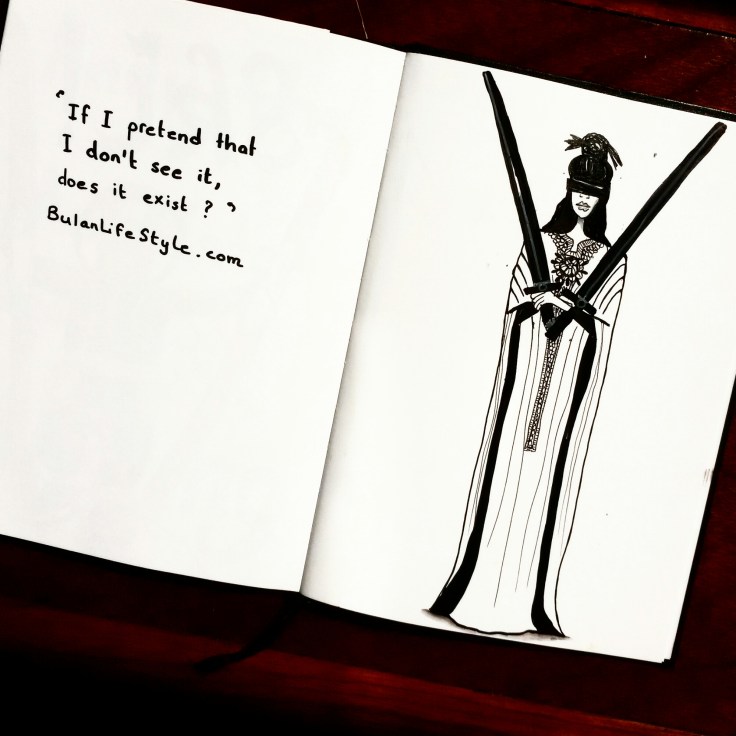 "If I pretend that
I don't see it,
does it exist ? "
BulanLifeStyle.com